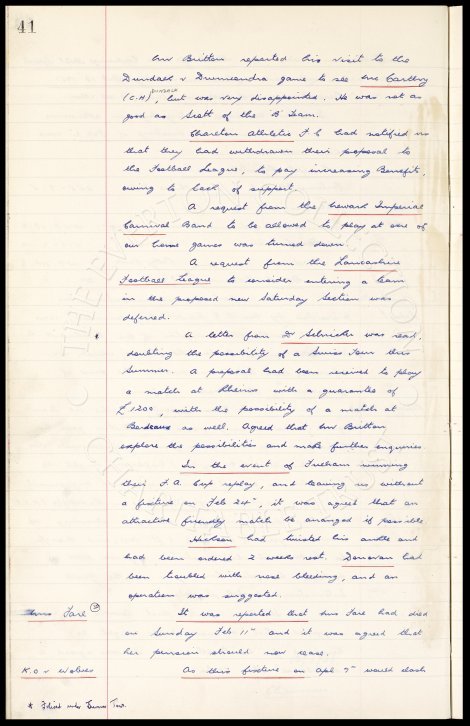 41
Mr Britton reported his visit to the
Dundalk v Drumcondra game to see Mc Carthy
(C.H) DUNDALK, but was very disappointed. He was not as
good as Scott of the B Team.
Charlton Athletic F C had notified us
that they had withdrawn their proposal to
the Football League, to pay increasing Benefits,
owing to lack of support.
A request from the Imperial
Carnival Band to be allowed to play at one of
our home games was turned down.
A request from the Lancashire
Football League to consider entering a team
in the proposed new Saturday Section was
deferred.
* A letter from Dr Schricker was read,
doubting the possibility of a Swiss Tour this
Summer. A proposal had been received to play
a match at Rheims with a guarantee of
£1200, with the possibility of a match at
Bordeaux as well. Agreed that Mr Britton
explore the possibilities and make further enquiries.
In the event of Fulham winning
their F.A. Cup replay, and leaving us without
a fixture on Feb 24th, it was agreed that an
attractive friendly match be arranged if possible
Hickson had twisted his ankle and
had been ordered 2 weeks rest. Donovan had
been troubled with nose bleeding, and an
operation was suggested.
Fare
It was reported that Mrs Fare had died
on Sunday Feb 11th and it was agreed that
her pension should now cease.
K.O v Wolves
As this fixture on Apl 7th would clash
* Tour